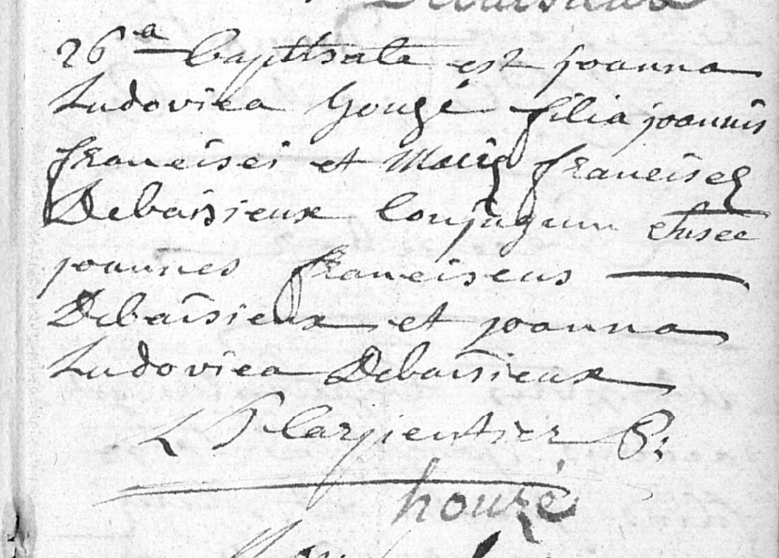 26ª baptisata est joanna
Ludovica houzé filia joannis
francisci et Mariæ franciscæ
Debaisieux Conjugum susce
joannes franciscus
Debaisieux et joanna
Ludovica Debaisieux
Carpentier P:
houzé